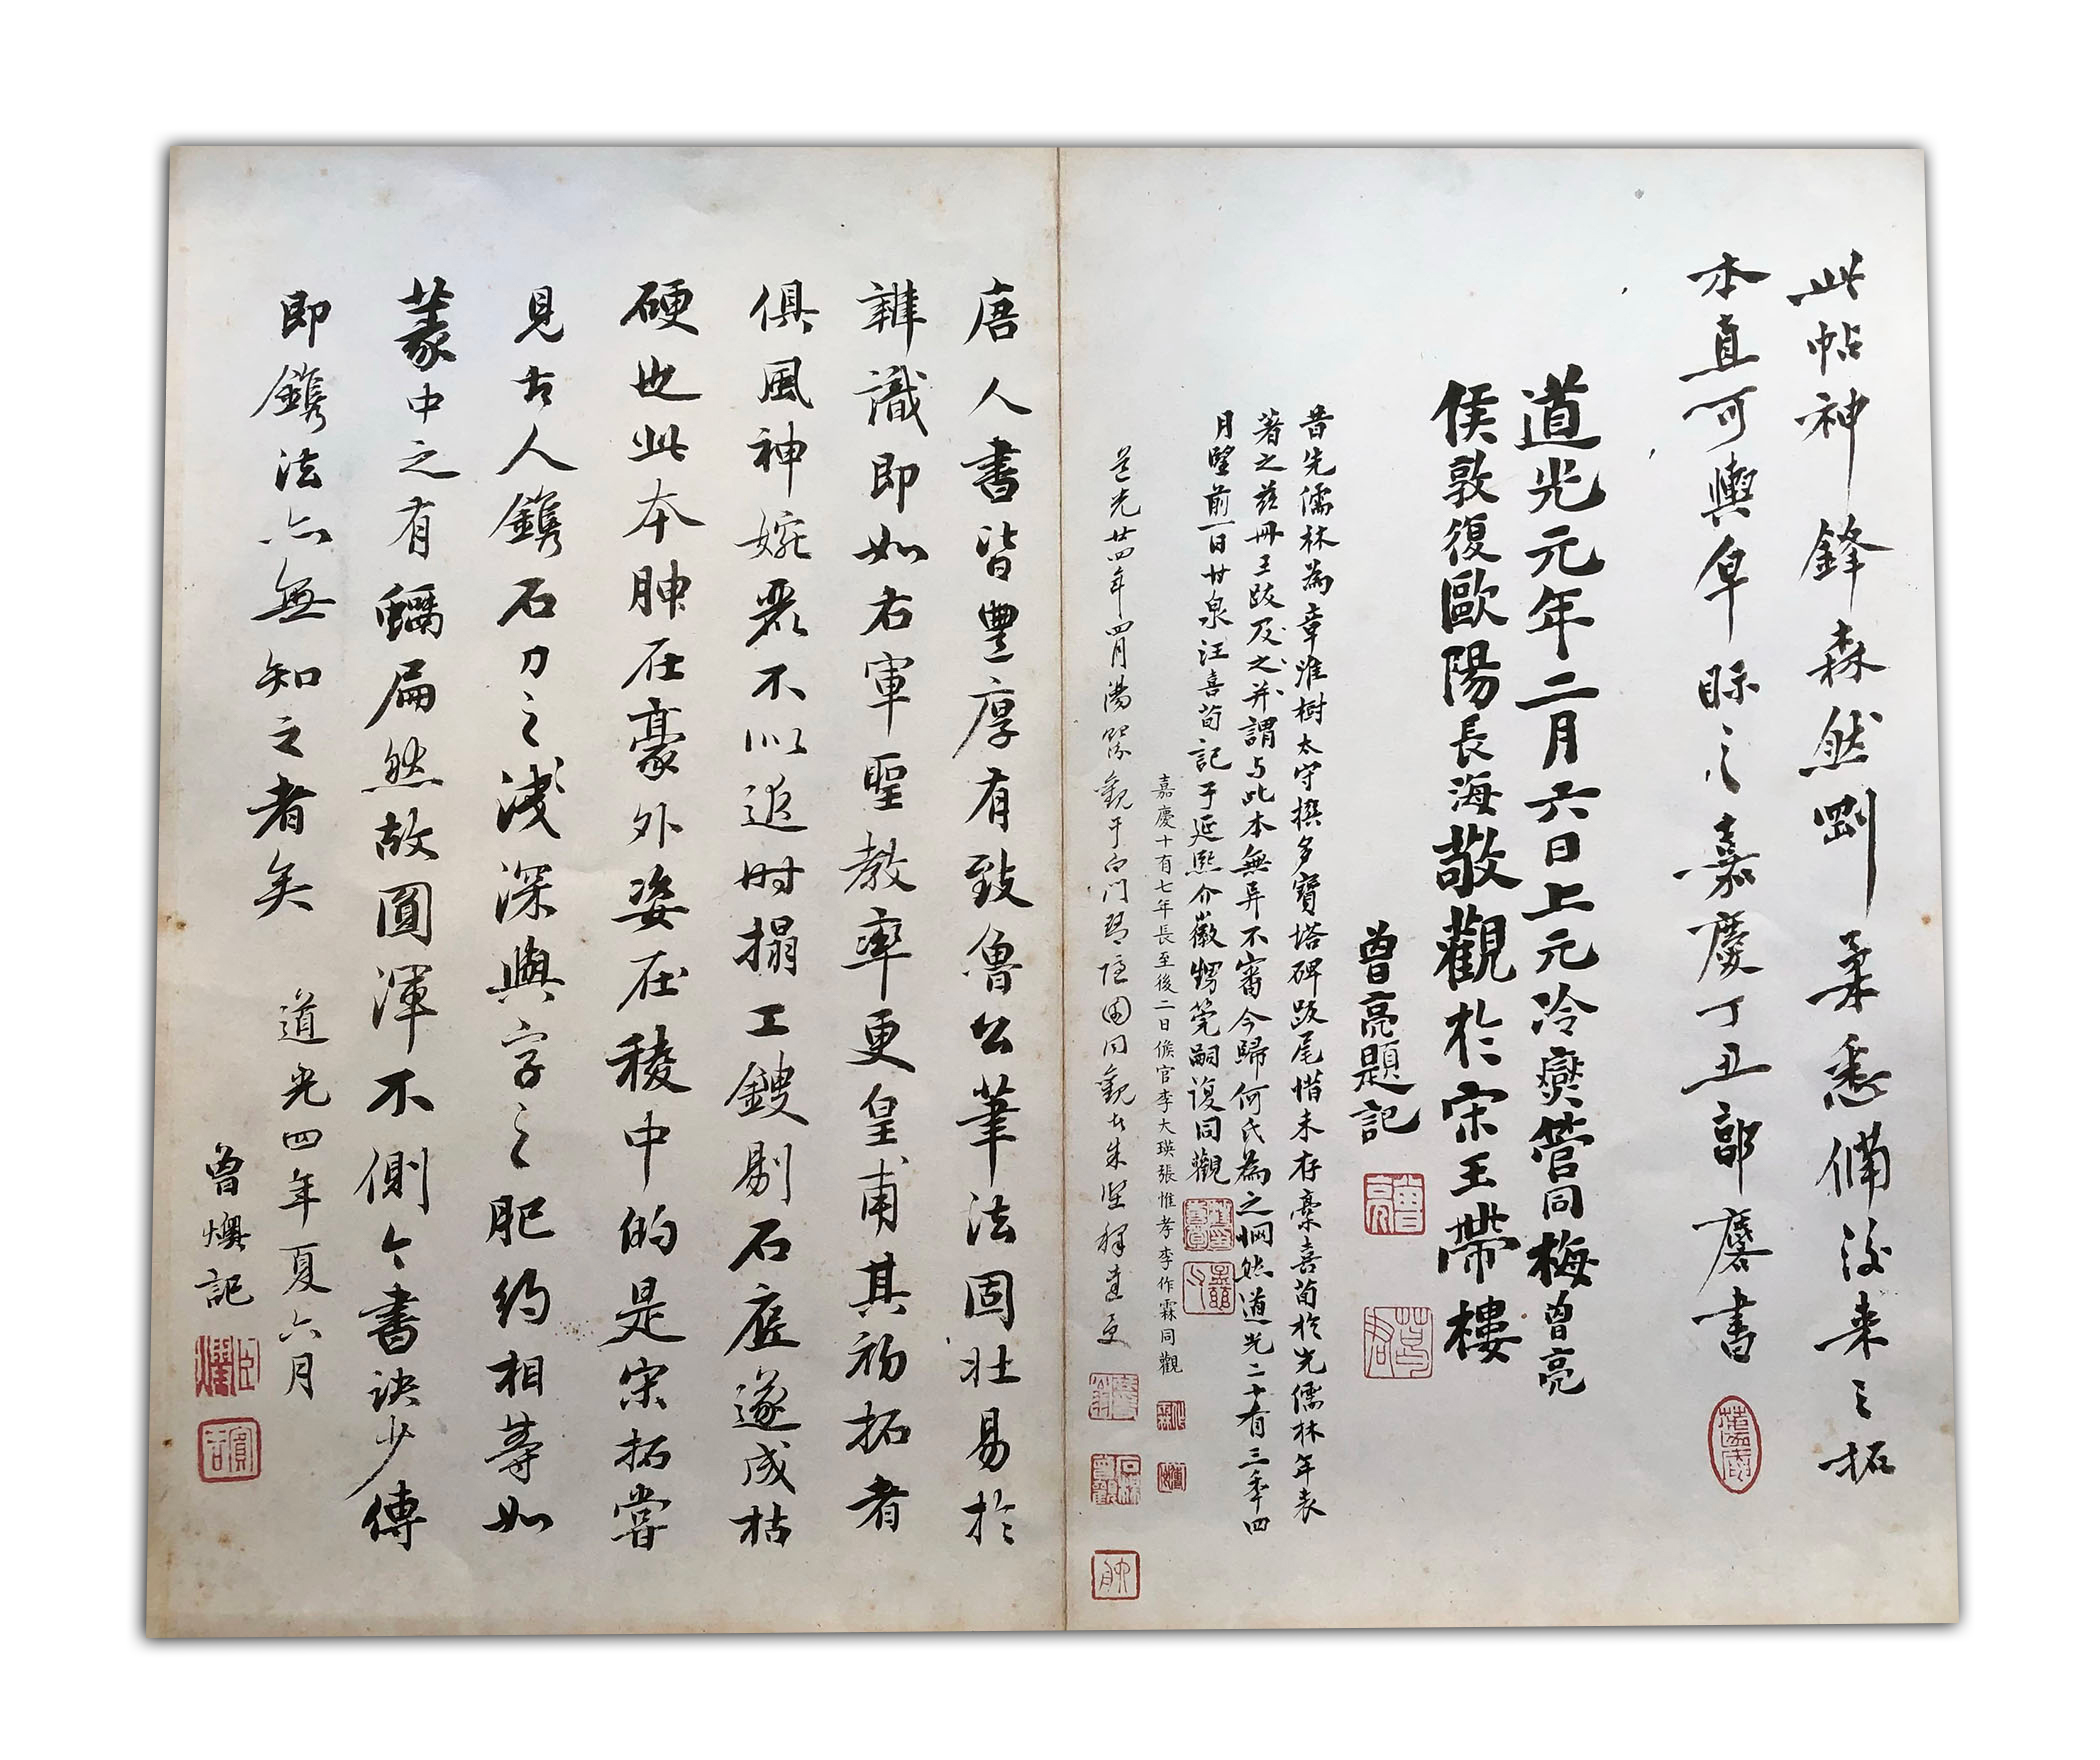 此帖神鋒森然剛柔悉備後来之拓
本直可輿皁眎之嘉慶丁丑郭麐書
道光元年二月六日上元冷爕管同梅曾亮
侯敦復歐陽長海敬觀於宋王帶樓
曾亮題記
昔先儒林為章淮樹太守撰多寶塔碑跋尾惜未存稾喜荀於先儒林年表
著之茲冊王跋及之并謂与此本無异不審今歸何氏為之惘然道光二十有三年四
月朢前一日甘泉汪喜荀記于延熙介徽甥筦嗣復同觀
嘉慶十有七年長至後二日候官李大瑛張惟孝李作霖同觀
道光廿四年四月湯貽汾觀于白門琴隱園同觀者朱堅釋達受
唐人書皆豐厚有致魯公筆法固壯易於
辨識即如右軍聖教率更皇甫其初拓者
俱風神婉麗不似近時搨工鎪剔石底遂成枯
硬也此本腴在豪外姿在稜中的是宋拓嘗
見古人鐫石刀之淺深與字之肥約相等如
篆中之有蠣扁然故圓渾不側今書訣少傳
即鐫法亦無知之者矣 道光四年夏六月
曾燠記